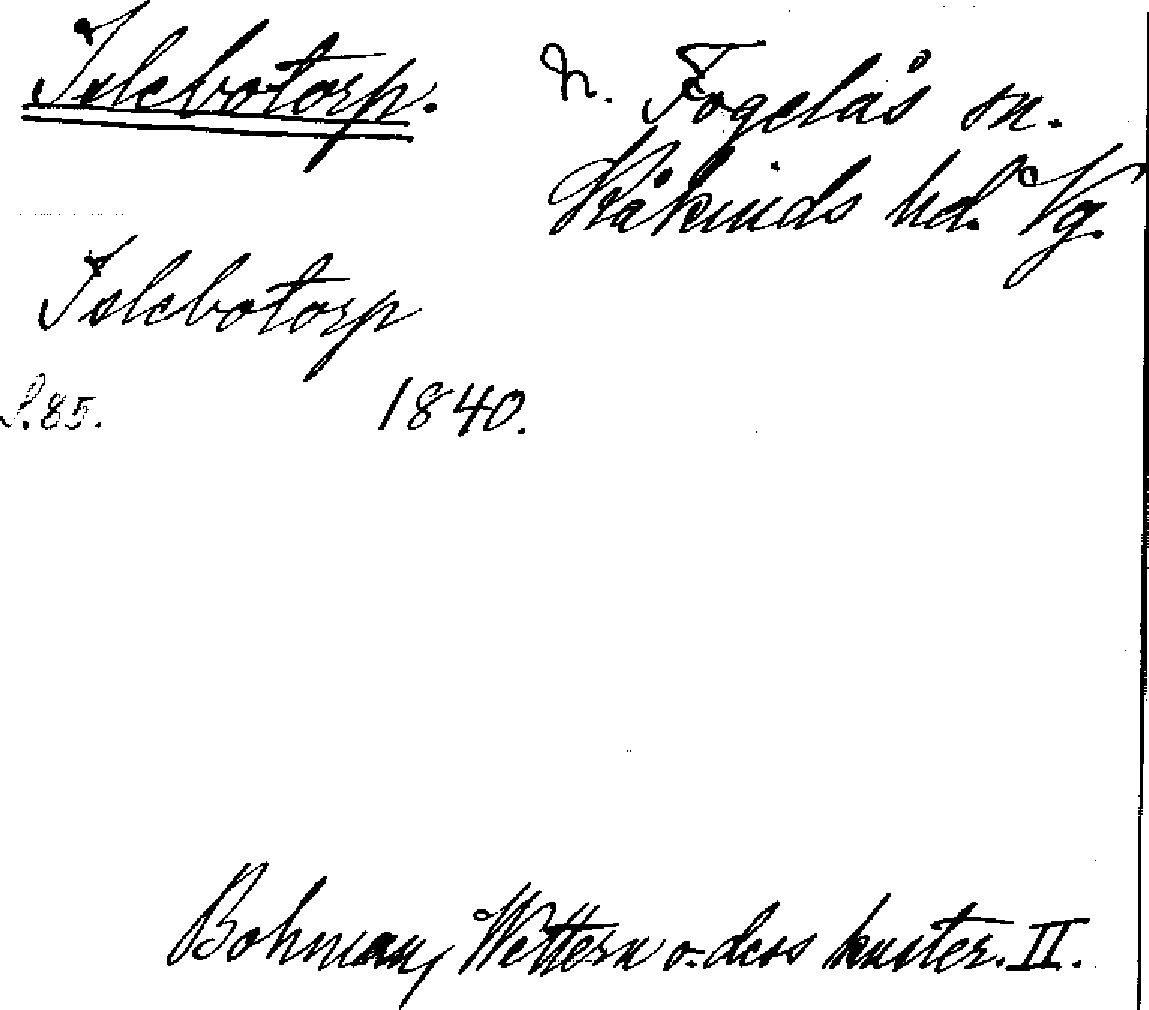 Islebotorp.
N. Fogelås sn.
Kåkinds hd. Vg.
Islebotorp
S. 85. 1840.
Bohman, Wettern o. dess kuster. II.